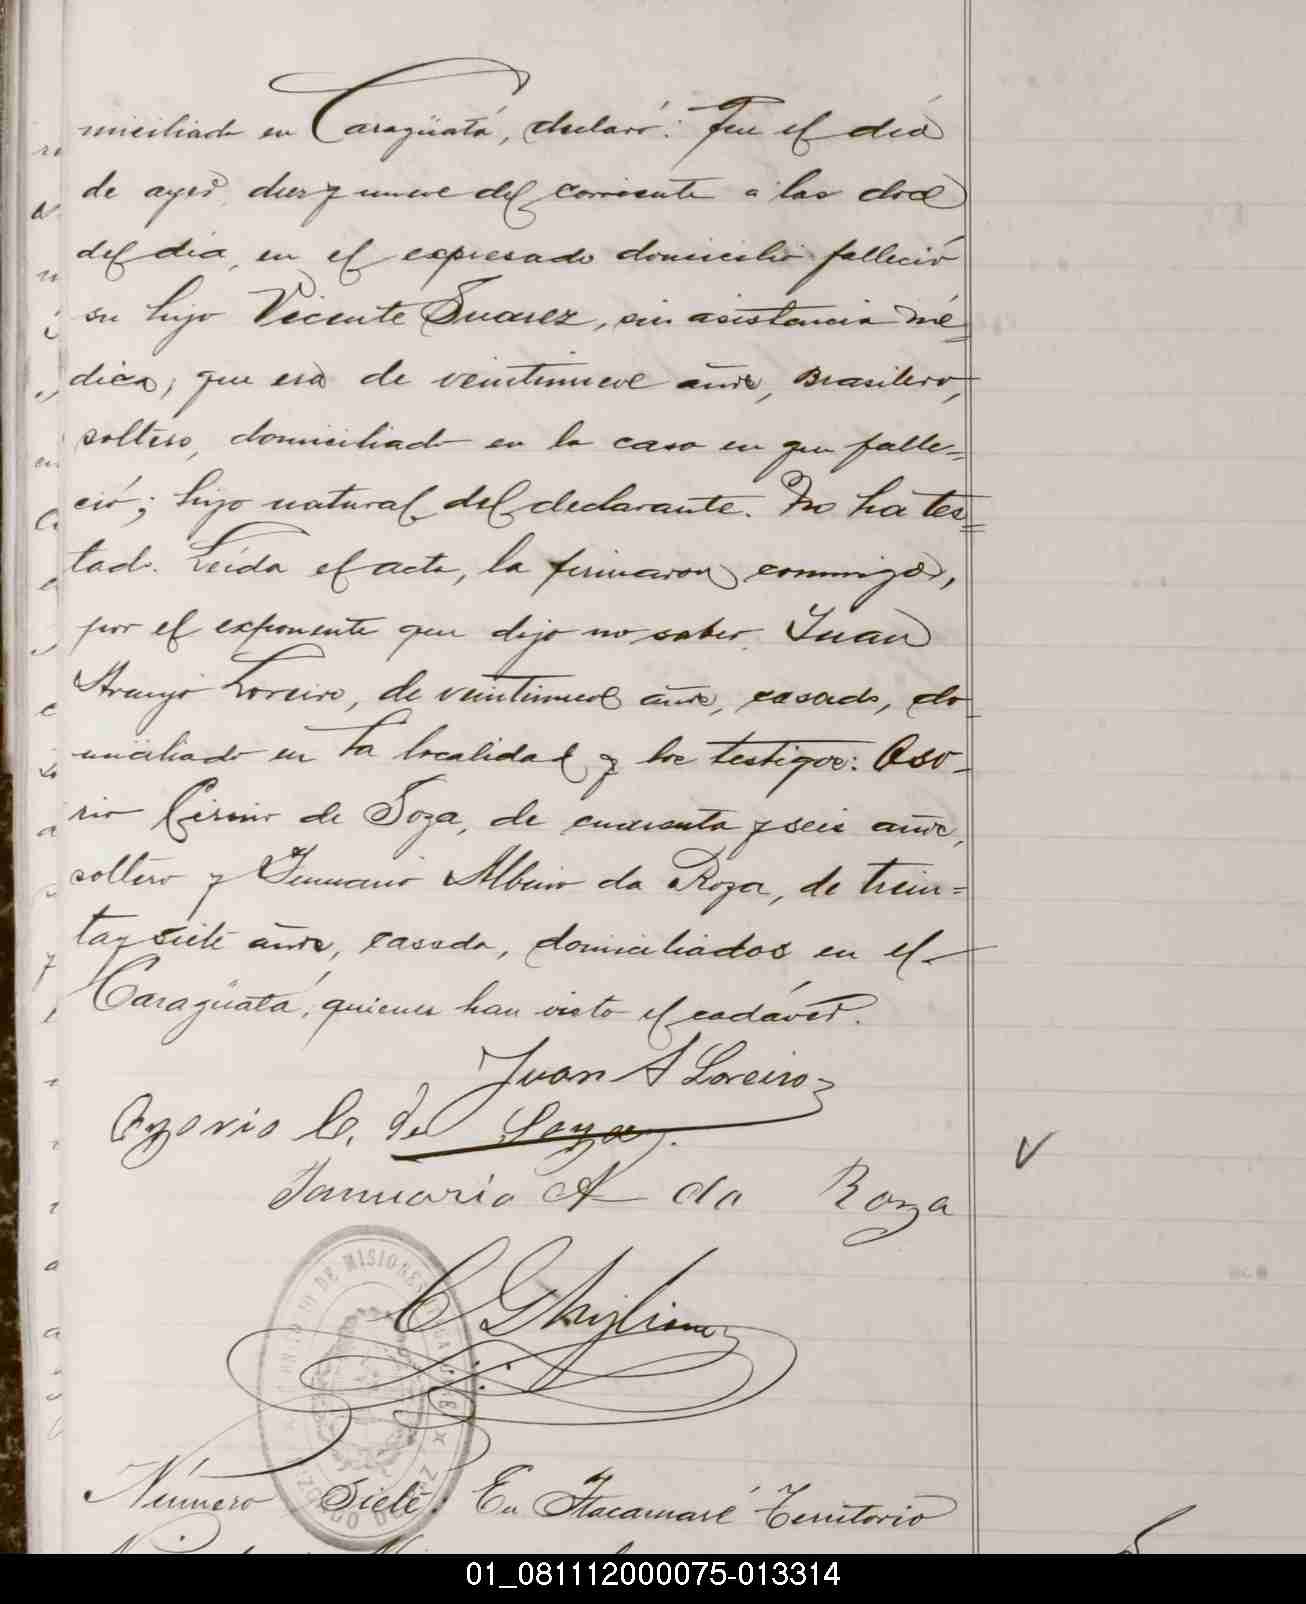 miciliado en Caragüatá, declaró: Que el día
de ayer, diez y nueve del corriente a las doce
del día, en el expresado domicilio falleció
su hijo Vicente Suarez, sin asistencia mé-
dica; que era de veintinueve años, Brasilero,
soltero, domiciliado en la casa en que falle=
ció; hijo natural del declarante. No ha tes=
tado. Leída el acta, la firmaron conmigo,
por el exponente que dijo no saber, Juan
Araujo Loreiro, de veintinueve años, casado, do-
miciliado en la localidad y los testigos: Oso-
rio Cirino de Soza, de cuarenta y seis años,
soltero y Januario Albino da Roza, de trein=
ta y siete años, casado, domiciliados en el
Caragüatá, quienes han visto el cadáver.
Juan A Loreiro
Ozorio C. de Soza.
Januario A da Roza
C Ghiglione
DE MISIONES
JUZGADO DE PAZ
Número Siete: En Itacaruaré Territorio
01_081112000075-013314